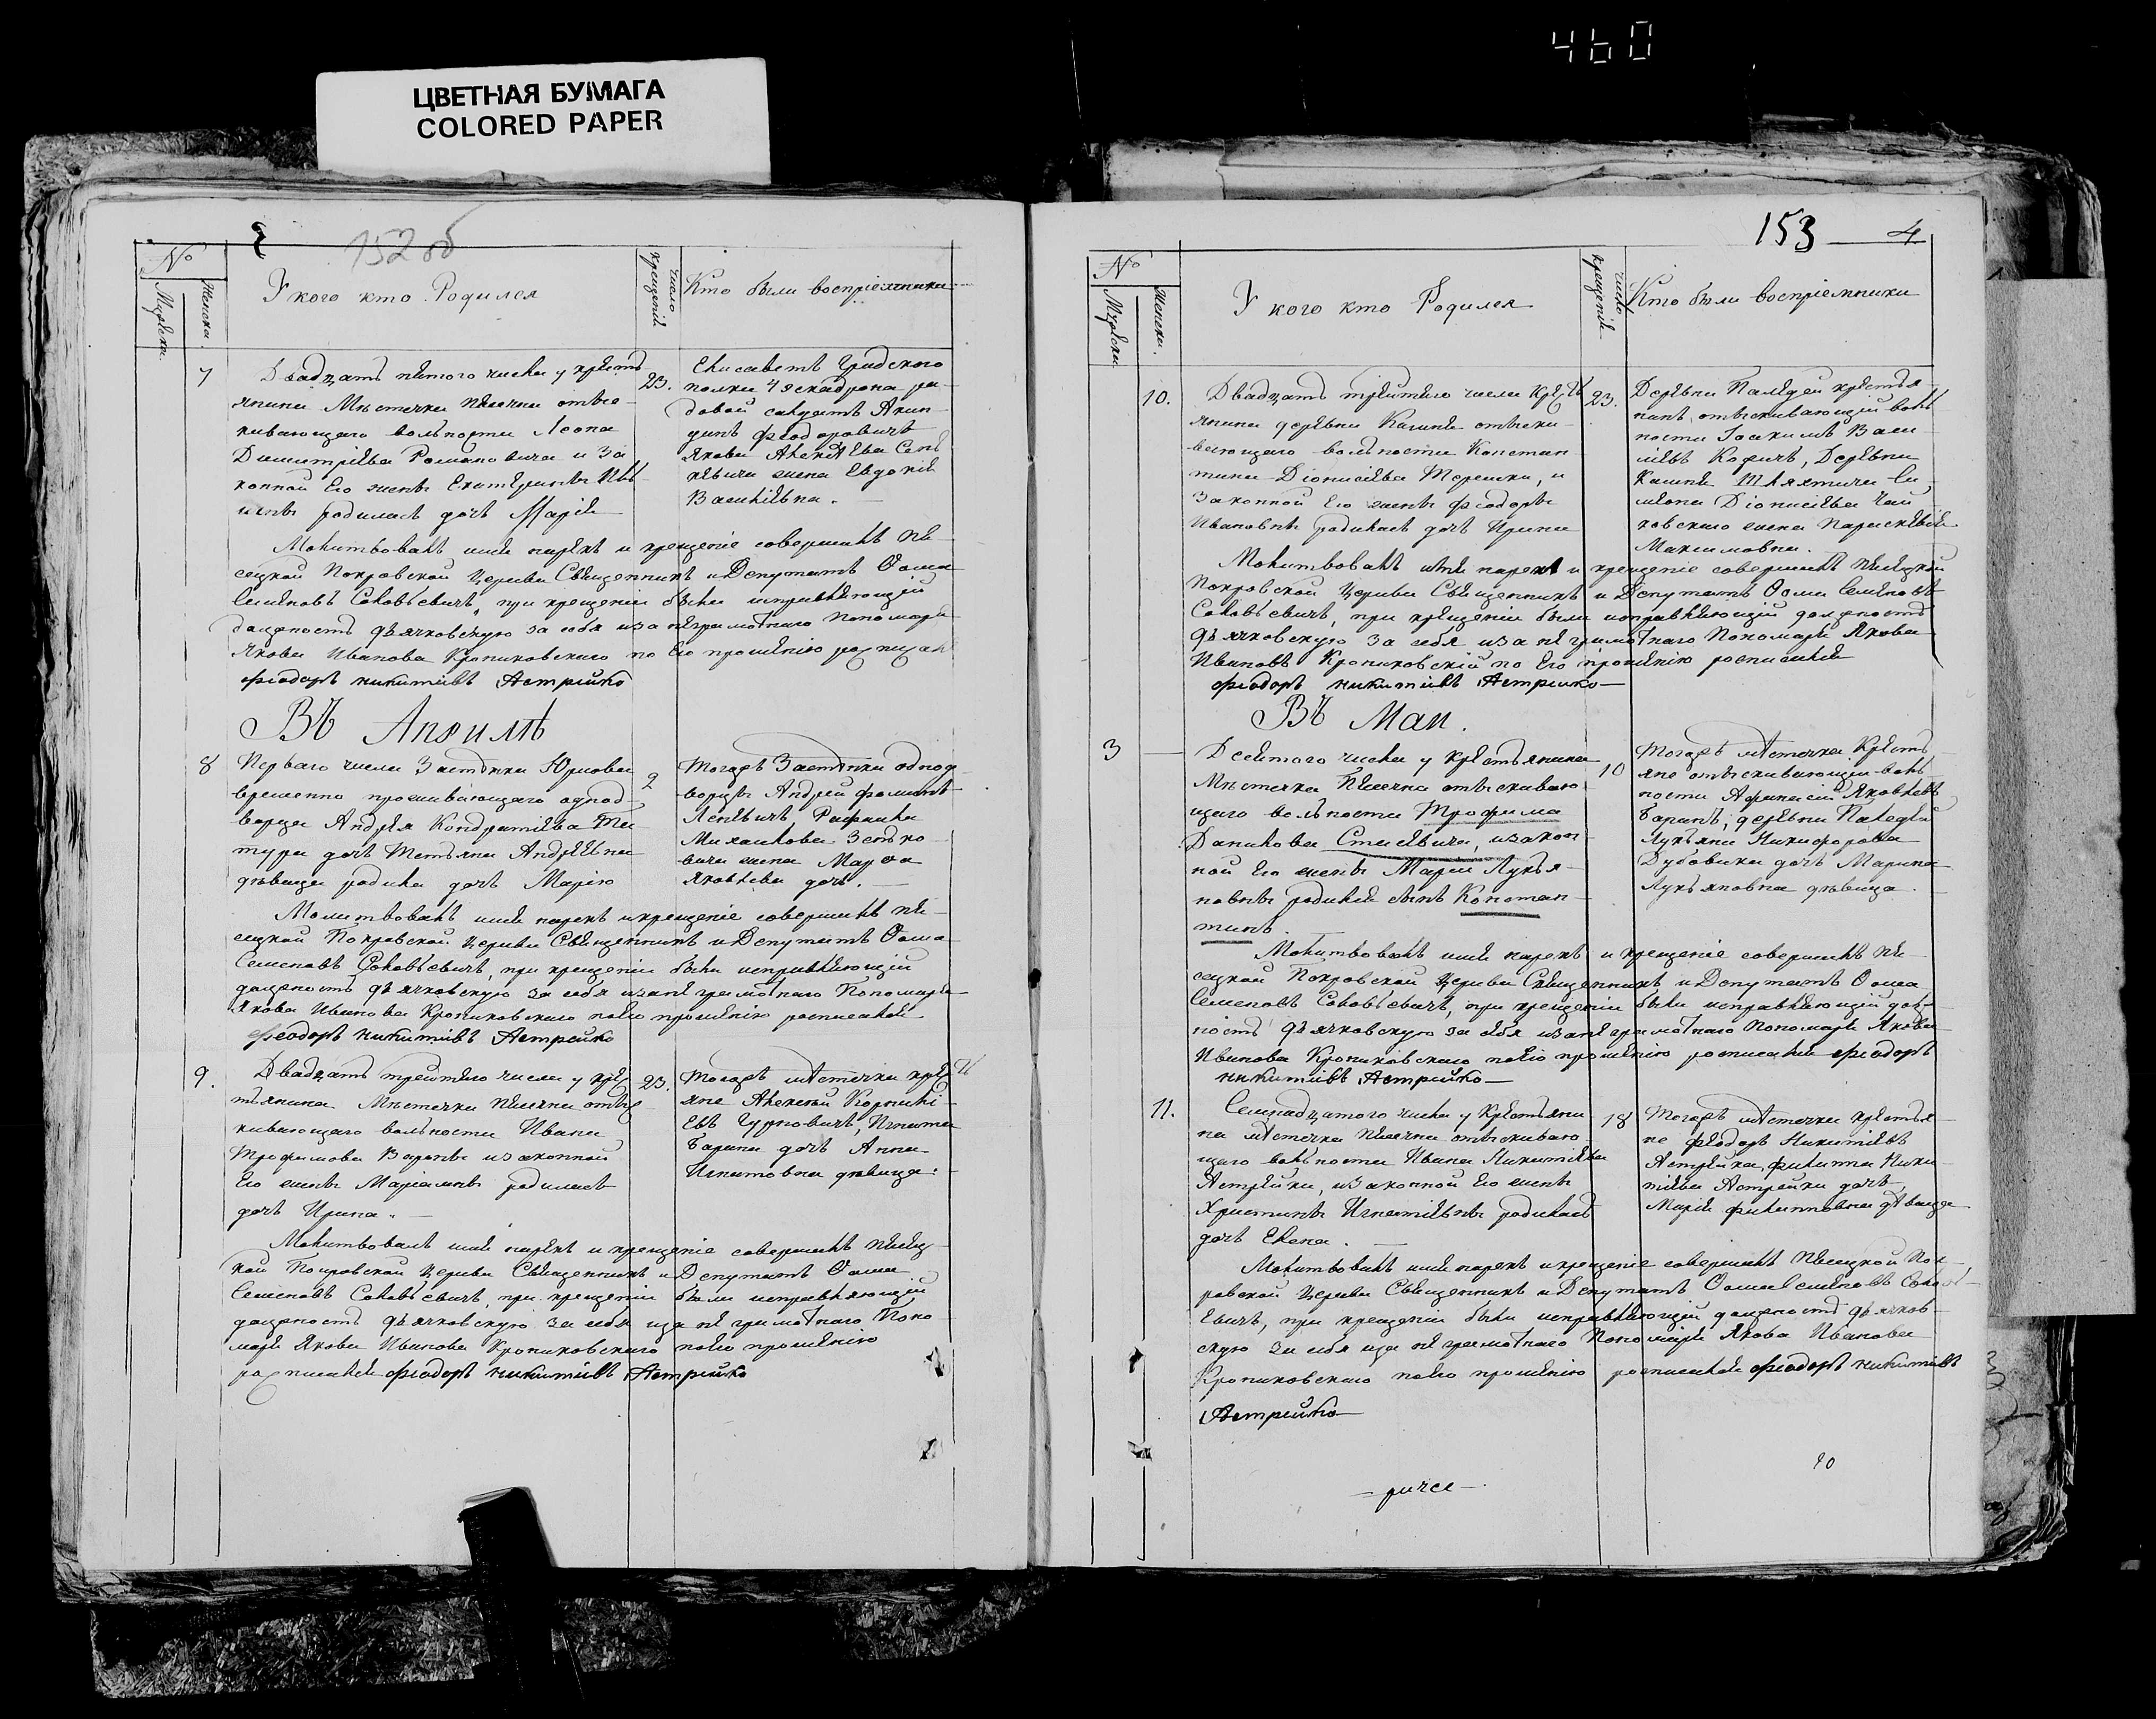 460
ЦВЕТНАЯ БУМАГА
COLORED PAPER
152 об
№
Мужска.
Женски.
У кого кто Родился
число крещеній
Кто были воспріемники
7
Двадцать пятого числа у крестъ
янина Мѣстечка отыс-
кивающаго вольности Леона
Димитріева Романовича и за
конной Его жены Екатерины
родилась дочь Марія
23.
Елисаветъ Градского
полка 4 эскадрона ря-
довой Акин-
динъ Феодоровичъ
Якова Алексѣева
жена Евдокія
Васильевна.
Молитвовалъ имя нарекъ и крещеніе совершилъ Пѣ-
сецкой Покровской Церкви Священникъ и Депутатъ Ѳома
Семеновъ Соковѣсвичъ, при крещеніи были исправляющій
должность дьячковскую за себя и за неграмотнаго Пономаря
Якова Иванова Кропиковскаго по Его прошенію
Феодоръ никитивъ Астрейко
Въ Априлѣ
8
Перваго числа Застѣнка Юрцова
временно проживающаго однод-
ворца Андрея Кондратіева
дочь Татьяна Андреевна
дѣвица родила дочь Марію
2
Тогожъ Застѣнка однод-
ворцы Андрей Фоминъ
Рафаила
Михаилова
жена Марѳа
Яковлева дочь.
Молитвовалъ имя нарекъ и крещеніе совершилъ Пѣ-
сецкой Покровской Церкви Священникъ и Депутатъ Ѳома
Семеновъ Соковѣсвичъ, при крещеніи были исправляющій
должность дьячковскую за себя и за неграмотнаго Пономаря
Якова Иванова Кропиковскаго по его прошенію росписался
Феодоръ никитивъ Астрейко
9.
Двадцать третьяго числа у крес
тьянина Мѣстечка отыс
кивающаго вольности Ивана
Трофимова Вороны и законной
Его жены Маріанны родилась
дочь Ирина.
23.
Тогожъ мѣстечка крес
яне Алексѣй Корниліи-
евъ Гурновичъ, Игната
Барина дочь Анна
Игнатовна дѣвица.
Молитвовалъ имя нарекъ и крещеніе совершилъ Пѣсец-
кой Покровской Церкви Священникъ и Депутатъ Ѳома
Семеновъ Соковѣсвичъ, при крещеніи были исправляющій
должность дьячковскую за себя и за не грамотнаго Поно-
маря Якова Иванова Кропиковскаго по его прошенію
росписался Феодоръ никитивъ Астрейко
153
4
№
Мужска.
Женски.
У кого кто Родился
число крещеній
Кто были воспріемники
10.
Двадцать третьяго числа Крес
янина деревни Калинъ отыски-
вающаго вольности Констан
тина Діонисіева Терешки, и
Законной Его жены Феодоры
Ивановны родилась дочь Ирина
23.
Деревни крестья-
нинъ отыскивающій воль
ности Іоакимъ Васи-
ліевъ Кофичъ, Деревни
Калинъ Шляхтича Си
меона Діонисіева Чай
ковскаго жена Параскевія
Максимовна.
Молитвовалъ имя нарекъ и крещеніе совершилъ Пѣсецкой
Покровской Церкви Священникъ и Депутатъ Ѳома Семеновъ
Соковѣсвичъ, при крещеніи были исправляющій должность
дьячковскую за себя и за не грамотнаго Пономаря Якова
Ивановъ Кропиковскій по Его прошенію росписался
Феодоръ никитивъ Астрейко
Въ Маи.
3
Десятого числа у крестьянина
Мѣстечка отыскиваю-
щаго вольности Трофима
Данилова Стасевича, и закон-
ной Его жены Маріи Лукья-
новны родился сынъ Констан-
тинъ.
10
Тогожъ мѣстечка Кресть
яне отыскивающіи воль
ности Афанасій Яковлевъ
Баринъ, деревни
Лукьяна Никифорова
Дубовика дочь Марина
Лукьяновна дѣвица.
Молитвовалъ имя нарекъ и крещеніе совершилъ Пѣ-
сецкой Покровской Церкви Священникъ и Депутатъ Ѳома
Семеновъ Соковѣсвичъ, при крещеніи были исправляющій дол-
ность дьячковскую за себя и за не грамотнаго Пономаря Якова
Иванова Кропиковскаго по его прошенію росписался Феодоръ
никитивъ Астрейко
11.
Семнадцатого числа у Крестьяни
на мѣстечка отыскиваю-
щаго вольности Ивана Никитіева
Астрейки, и законной Его жены
Христины Игнатіевны родилась
дочь Елена.
18
Тогожъ мѣстечка крестья
не Феодоръ Никитіевъ
Астрейка, Филиппа Ники-
тіева Астрейки дочь
Марія Филипповна дѣвица
Молитвовалъ имя нарекъ и крещеніе совершилъ Пѣсецкой Пок-
ровской Церкви Священникъ и Депутатъ Ѳома Семеновъ Соковѣс-
евичъ, при крещеніи были исправляющій должность дьячков-
скую за себя и за не грамотнаго Пономаря Якова Иванова
Кропиковскаго по его прошенію росписался Феодоръ никитивъ
Астрейко